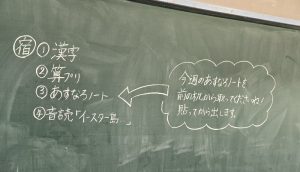 宿 ① 漢字
② 算プリ
③ あすなろノート
④ 音読「イースター島」
今週のあすなろノートを
前の机から取ってくださいね!
貼ってから出します。